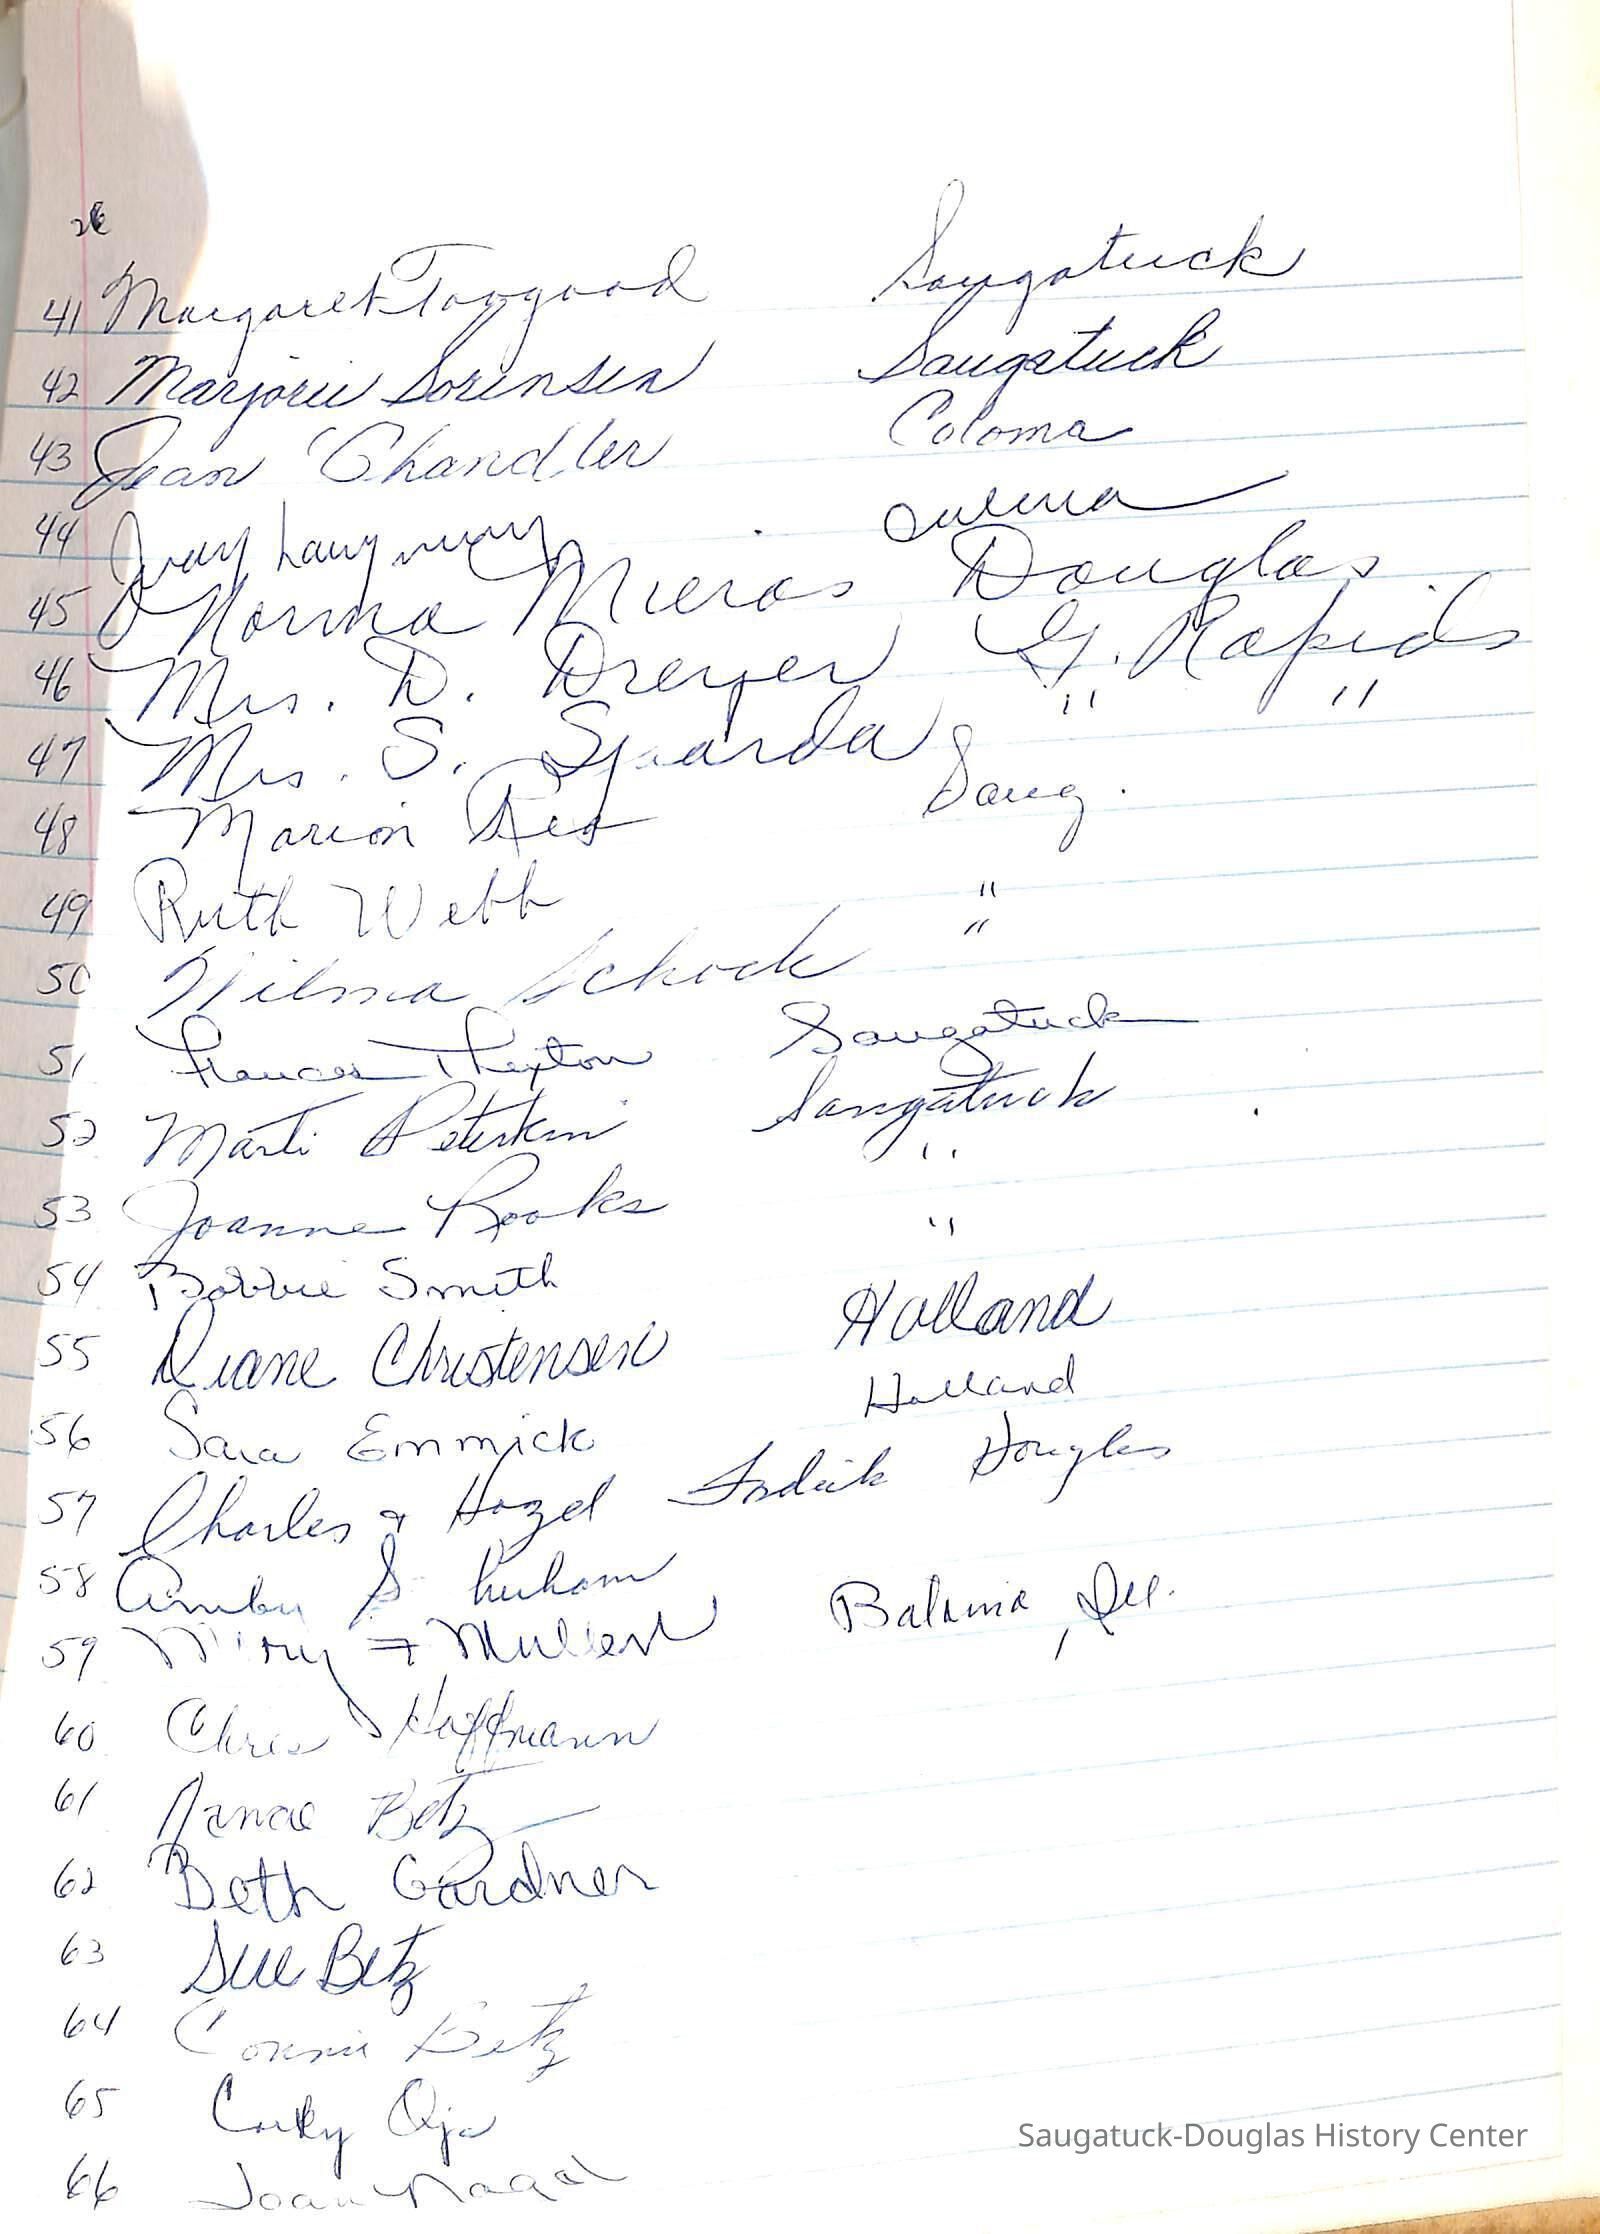 26
41 Margaret Toogood Saugatuck
42 Marjorie Sorensen Saugatuck
43 Jean Chandler Coloma
44 Judy
45 Norma Mieras Douglas
46 Mrs. D. Dreyer G. Rapids
47 Mrs. S. Sjaarda " "
48 Marion Saug.
49 Ruth Webb "
50 Wilma Schock "
51 Frances Thexton Saugatuck
52 Marti Peterkin Saugatuck
53 Joanne Rooks "
54 Bobbie Smith "
55 Diane Christensen Holland
56 Sara Emmick Holland
57 Charles & Hazel Douglas
58 S
59 Mary Batavia, Ill.
60 Chris Hoffmann
61 Betz
62 Beth Gardner
63 Sue Betz
64 Connie Betz
65 Corky Oja
66 Joan Nagel
Saugatuck-Douglas History Center